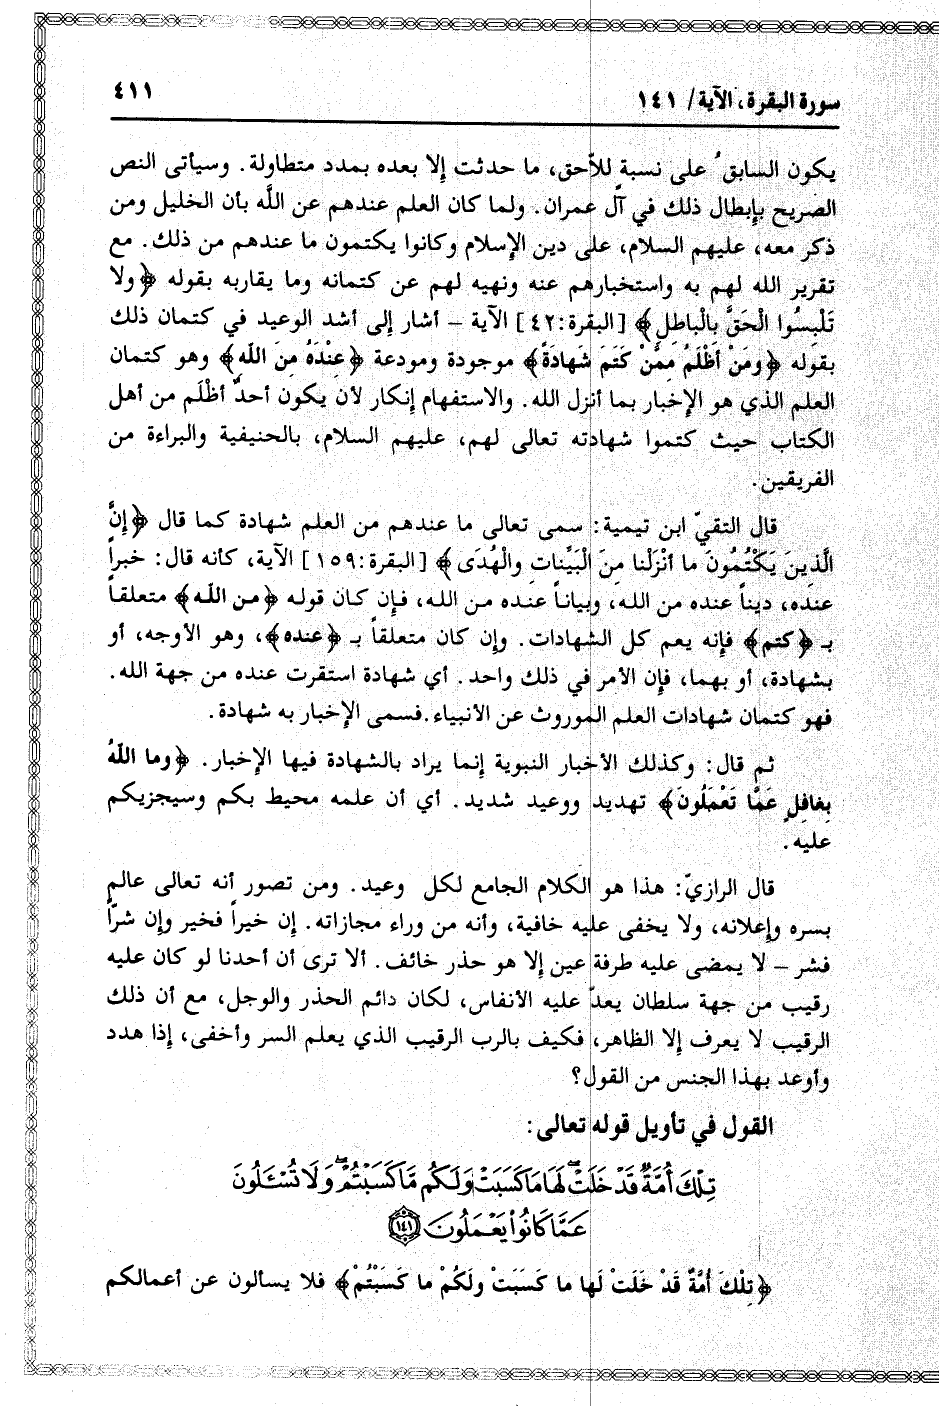 سورة البقرة، الآية/ ١٤١
٤١١
يكون السابق ُ على نسبةٍ للأحق، ما حدثت إلا بعده بمدد متطاولة. وسيأتى النص
الصريح بإبطال ذلك في آل عمران. ولما كان العلم عندهم عن اللَّه بأن الخليل ومن
ذكر معه، عليهم السلام، على دين الإسلام وكانوا يكتمون ما عندهم من ذلك. مع
تقرير الله لهم به واستخبارهم عنه ونهيه لهم عن كتمانه وما يقاربه بقوله ﴿ولا
تَلْبِسُوا الْحَقَّ بِالْباطِلِ﴾ [البقرة:٤٢] الآية – أشار إلى أشد الوعيد في كتمان ذلك
بقوله ﴿ومَنْ أظْلَمُ مِمَّنْ كَتَمَ شَهادَةً﴾ موجودة ومودعة ﴿عِنْدَهُ مِنَ اللَه﴾ وهو كتمان
العلم الذي هو الإخبار بما أنزل الله. والاستفهام إنكار لأن يكون أحدٌ أظْلَم من أهل
الكتاب حيث كتموا شهادته تعالى لهم، عليهم السلام، بالحنيفية والبراءة من
الفريقين.
قال التقيّ ابن تيمية: سمى تعالى ما عندهم من العلم شهادة كما قال ﴿إنَّ
الَّذِينَ يَكْتُمُونَ ما أنْزَلْنا مِنَ الْبَيِّناتِ والْهُدَى﴾ [البقرة:١٥٩] الآية، كأنه قال: خبراً
عنده، ديناً عنده من الله، وبياناً عنده من الله، فإن كان قوله ﴿من اللَّه﴾ متعلقاً
بـ ﴿كتم﴾ فإنه يعم كل الشهادات. وإن كان متعلقاً بـ ﴿عنده﴾، وهو الأوجه، أو
بشهادة، أو بهما، فإن الأمر في ذلك واحد. أي شهادة استقرت عنده من جهة الله.
فهو كتمان شهادات العلم الموروث عن الأنبياء.فسمى الإخبار به شهادة.
ثم قال: وكذلك الأخبار النبوية إنما يراد بالشهادة فيها الإخبار. ﴿وما اللَّهُ
بِغافِلٍ عَمَّا تَعْمَلُونَ﴾ تهديد ووعيد شديد. أي أن علمه محيط بكم وسيجزيكم
عليه.
قال الرازيّ: هذا هو الكلام الجامع لكل وعيد. ومن تصور أنه تعالى عالم
بسره وإعلانه، ولا يخفى عليه خافية، وأنه من وراء مجازاته. إن خيراً فخير وإن شرّاً
فشر – لا يمضى عليه طرفة عين إلا هو حذر خائف. ألا ترى أن أحدنا لو كان عليه
رقيب من جهة سلطان يعدّ عليه الأنفاس، لكان دائم الحذر والوجل، مع أن ذلك
الرقيب لا يعرف إلا الظاهر، فكيف بالرب الرقيب الذي يعلم السر وأخفى، إذا هدد
وأوعد بهذا الجنس من القول؟
القول في تأويل قوله تعالى:
تِلْكَ أُمَّةٌ قَدْ خَلَتْ ۖ لَهَا مَا كَسَبَتْ وَلَكُم مَّا كَسَبْتُمْ ۖ وَلَا تُسْـَٔلُونَ
عَمَّا كَانُوا۟ يَعْمَلُونَ ١٤١
﴿تِلْكَ أُمَّةٌ قَدْ خَلَتْ لَها ما كَسَبَتْ ولَكُمْ ما كَسَبْتُمْ﴾ فلا يسألون عن أعمالكم